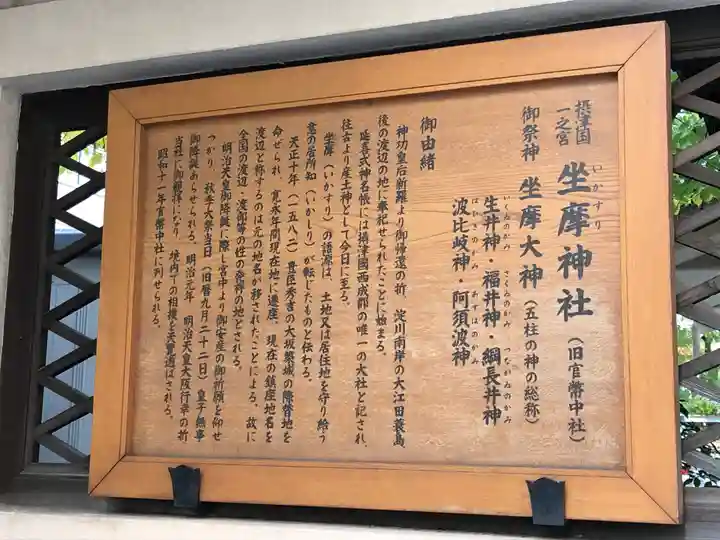 摂津国
一之宮
いかすり
坐摩神社（旧官幣中社）
御祭神 坐摩大神（五柱の神の総称）
いくゐのかみ さくゐのかみ つながゐのかみ
生井神・福井神・綱長井神
はひきのかみ あすはのかみ
波比岐神・阿須波神
御由緒
神功皇后新羅より御帰還の折、淀川南岸の大江田蓑島
後の渡辺の地に奉祀せられたことに始まる。
延喜式神名帳には摂津国西成郡の唯一の大社と記され、
往古より産土神として今日に至る。
坐摩（いかすり）の語源は、土地又は居住地を守り給う
意の居所知（いかしり）が転じたものと伝わる。
天正十年（一五八二）豊臣秀吉の大坂築城の際替地を
命ぜられ、寛永年間現在地に遷座、現在の鎮座地名を
渡辺と称するのは元の地名が移されたことによる。故に
全国の渡辺・渡部等の姓の発祥の地とされる。
明治天皇御降誕に際し宮中より御安産の御祈願を仰せ
つかり、秋季大祭当日（旧暦九月二十二日）皇子無事
御降誕あらせられる。明治元年 明治天皇大阪行幸の折
当社に御親拝になり、境内での相撲を天覧遊ばされる。
昭和十一年官幣中社に列せられる。